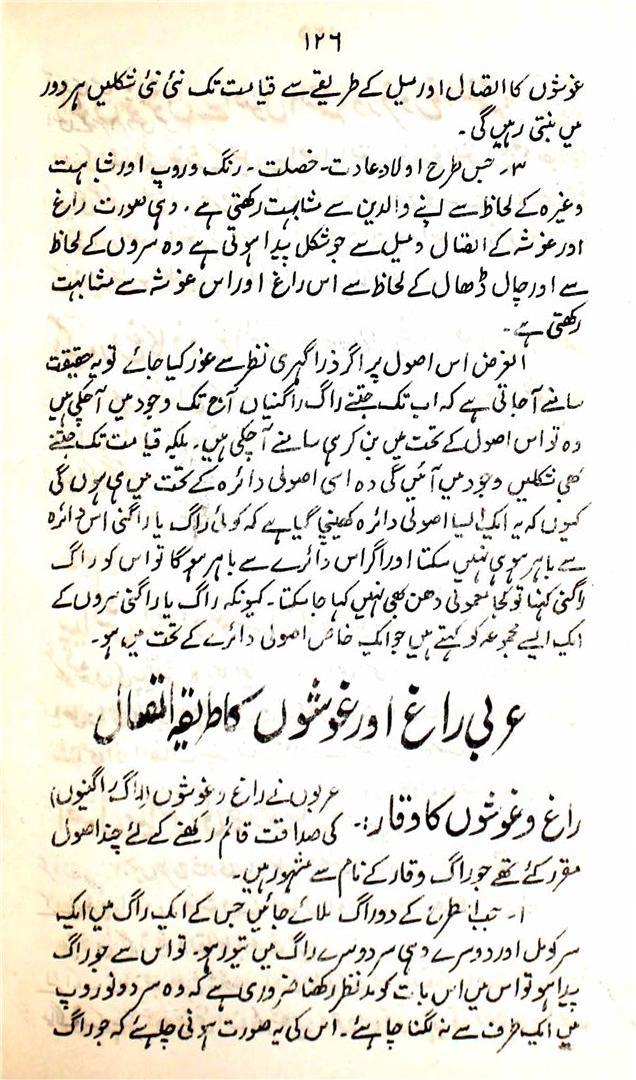 ۱۲۶
غوشوں کا اتصال اور میل کے طریقے سے قیامت تک نئی نئی شکلیں ہر دور
میں بنتی رہیں گی۔
۳۔ جس طرح اولاد عادت۔ خصلت۔ رنگ و روپ اور شباہت
وغیرہ کے لحاظ سے اپنے والدین سے مشابہت رکھتی ہے۔ وہی صورت راغ
اور غوشہ کے اتصال و میل سے جو شکل پیدا ہوتی ہے وہ سروں کے لحاظ
سے اور چال ڈھال کے لحاظ سے اس راغ اور اس غوشہ سے مشابہت
رکھتی ہے۔
الغرض اس اصول پر اگر ذرا گہری نظر سے غور کیا جائے تو یہ حقیقت
سامنے آجاتی ہے کہ اب تک جتنے راگ راگنیاں آج تک وجود میں آچکی ہیں
وہ تو اس اصول کے تحت میں بن کر ہی سامنے آچکی ہیں۔ بلکہ قیامت تک جتنے
بھی شکلیں وجود میں آئیں گی وہ اسی اصولی دائرہ کے تحت میں ہی ہوں گی
کیوں کہ یہ ایک ایسا اصولی دائرہ کھینچا گیا ہے کہ کوئی راگ یا راگنی اس دائرہ
سے باہر ہو ہی نہیں سکتا اور اگر اس دائرے سے باہر ہوگا تو اس کو راگ
راگنی کہنا تو کجا معمولی دھن بھی نہیں کہا جاسکتا۔ کیونکہ راگ یا راگنی سروں کے
ایک ایسے مجموعہ کو کہتے ہیں جو ایک خاص اصولی دائرے کے تحت میں ہو۔
عربی راغ اور غوشوں کا طریقہ اتصال
راغ و غوشوں کا وقار:۔ عربوں نے راغ و غوشوں (راگ راگنیوں)
کی صداقت قائم رکھنے کے لئے چند اصول
مقرر کئے تھے جو راگ وقار کے نام سے مشہور ہیں۔
۱۔ جب اسطرح کے دو راگ ملائے جائیں جس کے ایک راگ میں ایک
سر کومل اور دوسرے وہی سر دوسرے راگ میں تیور ہو۔ تو اس سے جو راگ
پیدا ہو تو اس میں اس بات کو مدنظر رکھنا ضروری ہے کہ وہ سر دونو روپ
میں ایک طرف سے نہ لگنا چاہئے۔ اس کی یہ صورت ہونی چاہئے کہ جو راگ